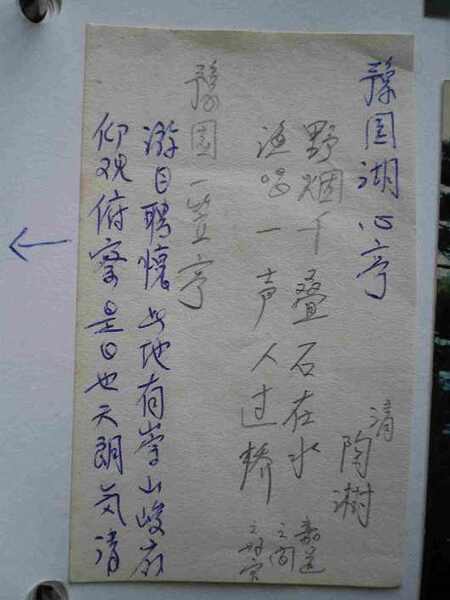 豫园湖心亭
清
陶澍
野烟千叠石在水
渔唱一声人过桥
嘉道
之间
豫园一笠亭
游目聘懷此地有崇山峻岭
仰观俯察是日也天朗气清